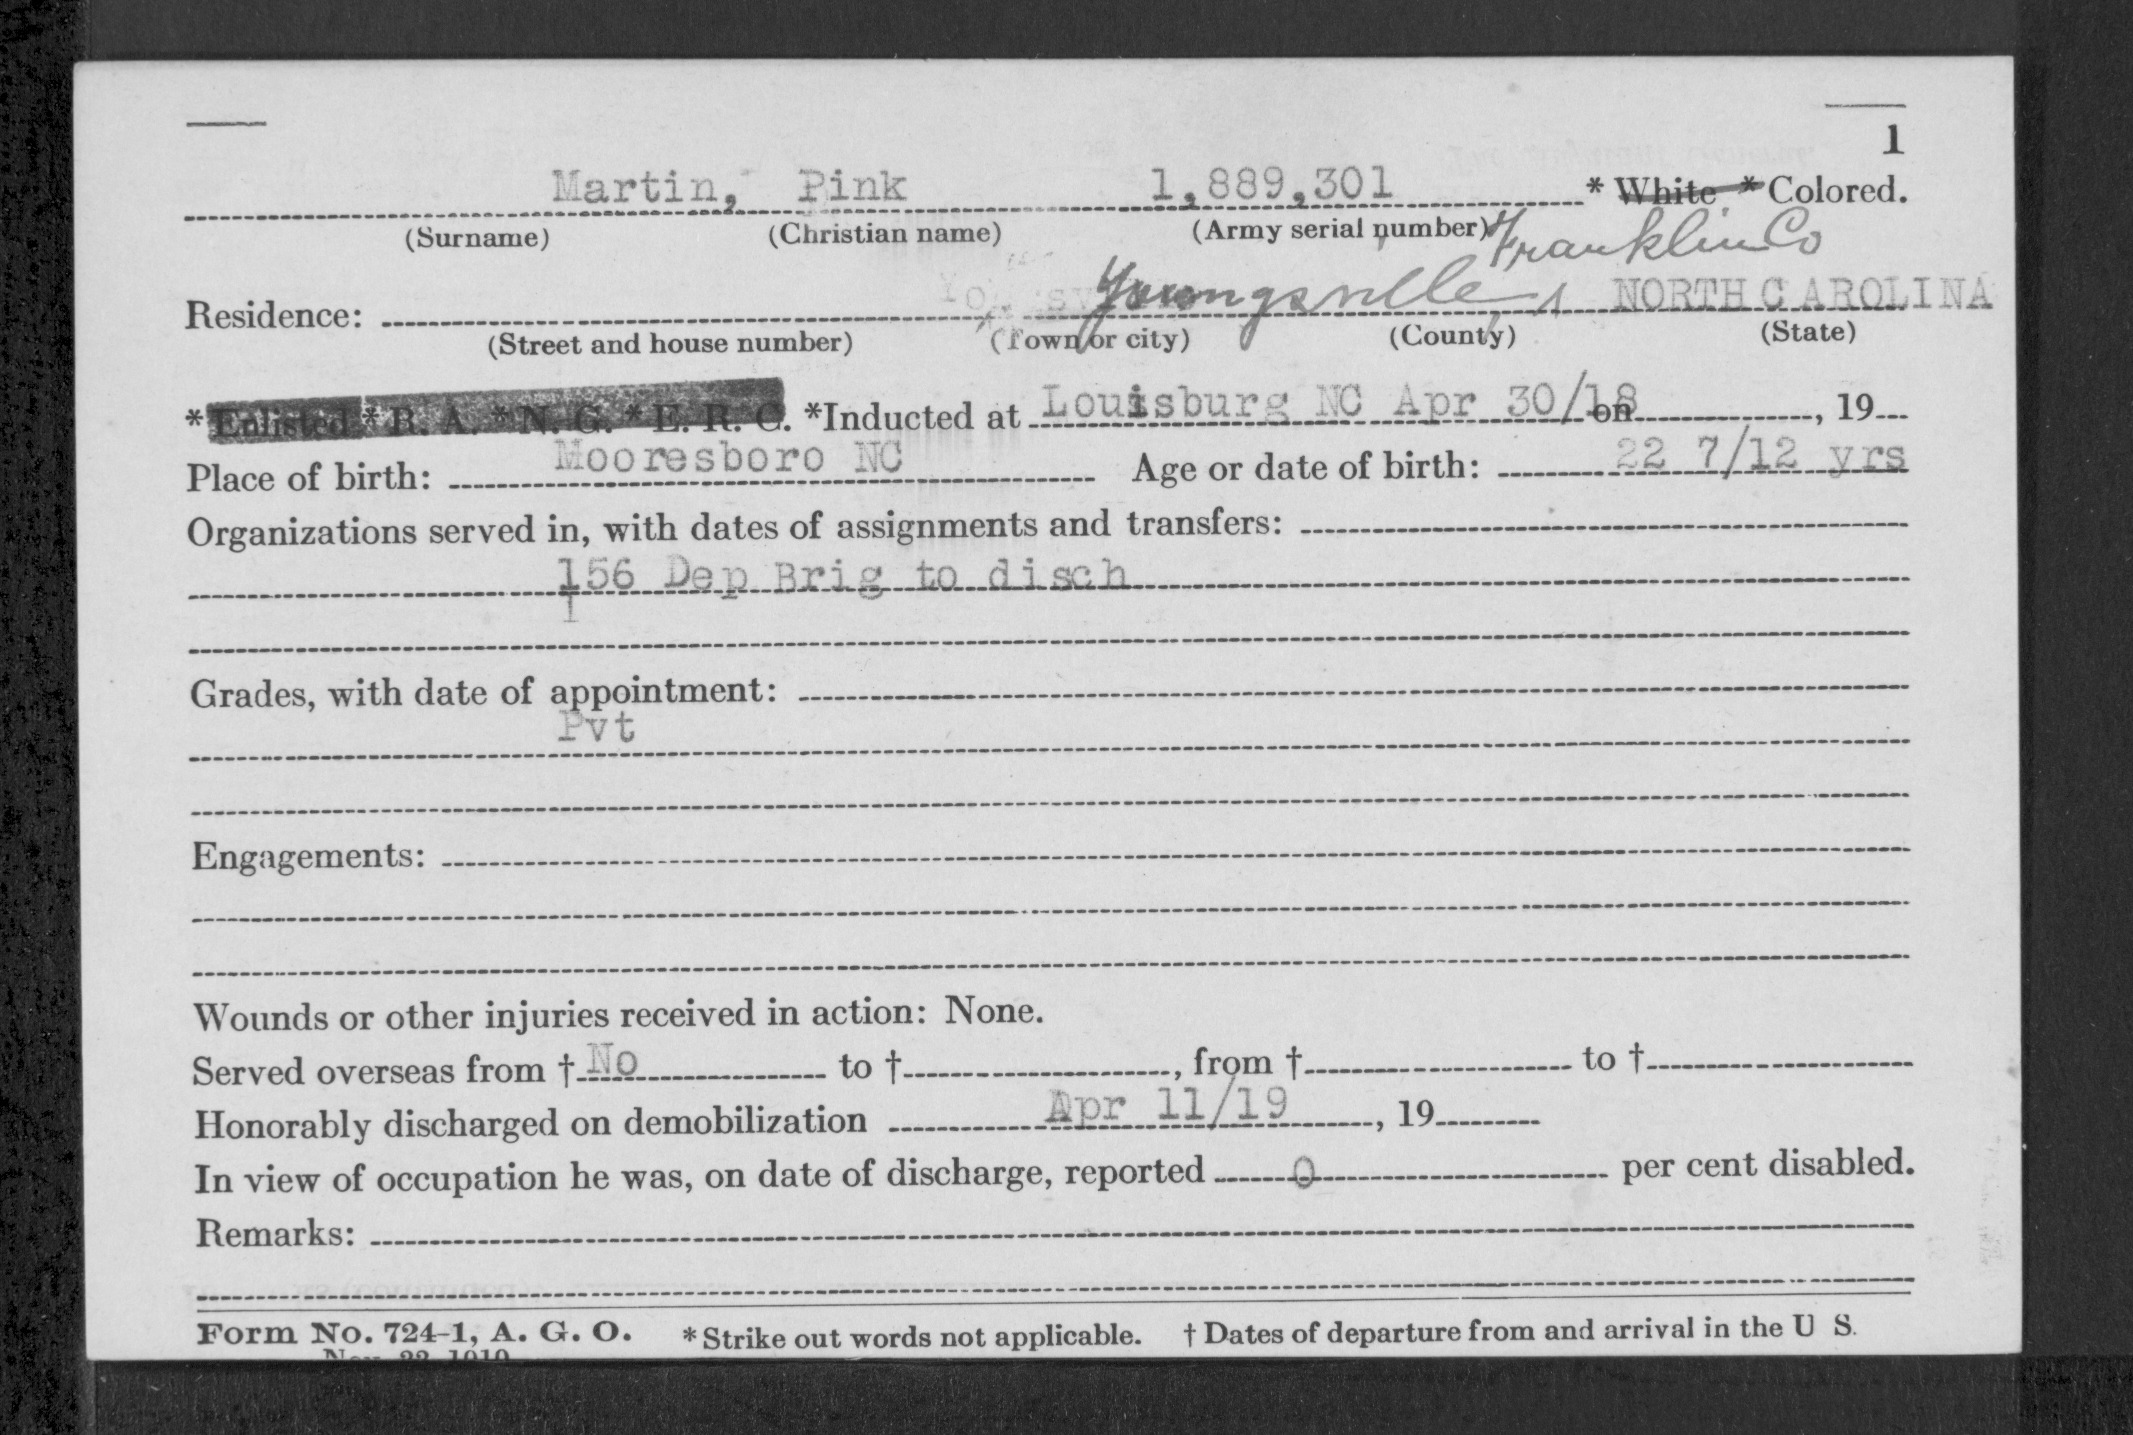 1
Martin, Pink 1,889,301 * White * Colored.
(Surname) (Christian name) (Army serial number)
Franklin Co
Residence: Youngsville, NORTH CAROLINA
(Street and house number) (Town or city) (County) (State)
* Enlisted * R. A. * N. G. * E. R. C. *Inducted at Louisburg NC Apr 30/18 on , 19
Place of birth: Mooresboro NC Age or date of birth: 22 7/12 yrs
Organizations served in, with dates of assignments and transfers:
156 Dep Brig to disch
Grades, with date of appointment:
Pvt
Engagements:
Wounds or other injuries received in action: None.
Served overseas from † No to † , from † to †
Honorably discharged on demobilization Apr 11/19 , 19
In view of occupation he was, on date of discharge, reported 0 per cent disabled.
Remarks:
Form No. 724-1, A. G. O. * Strike out words not applicable. † Dates of departure from and arrival in the U S.
Nov. 22, 1919